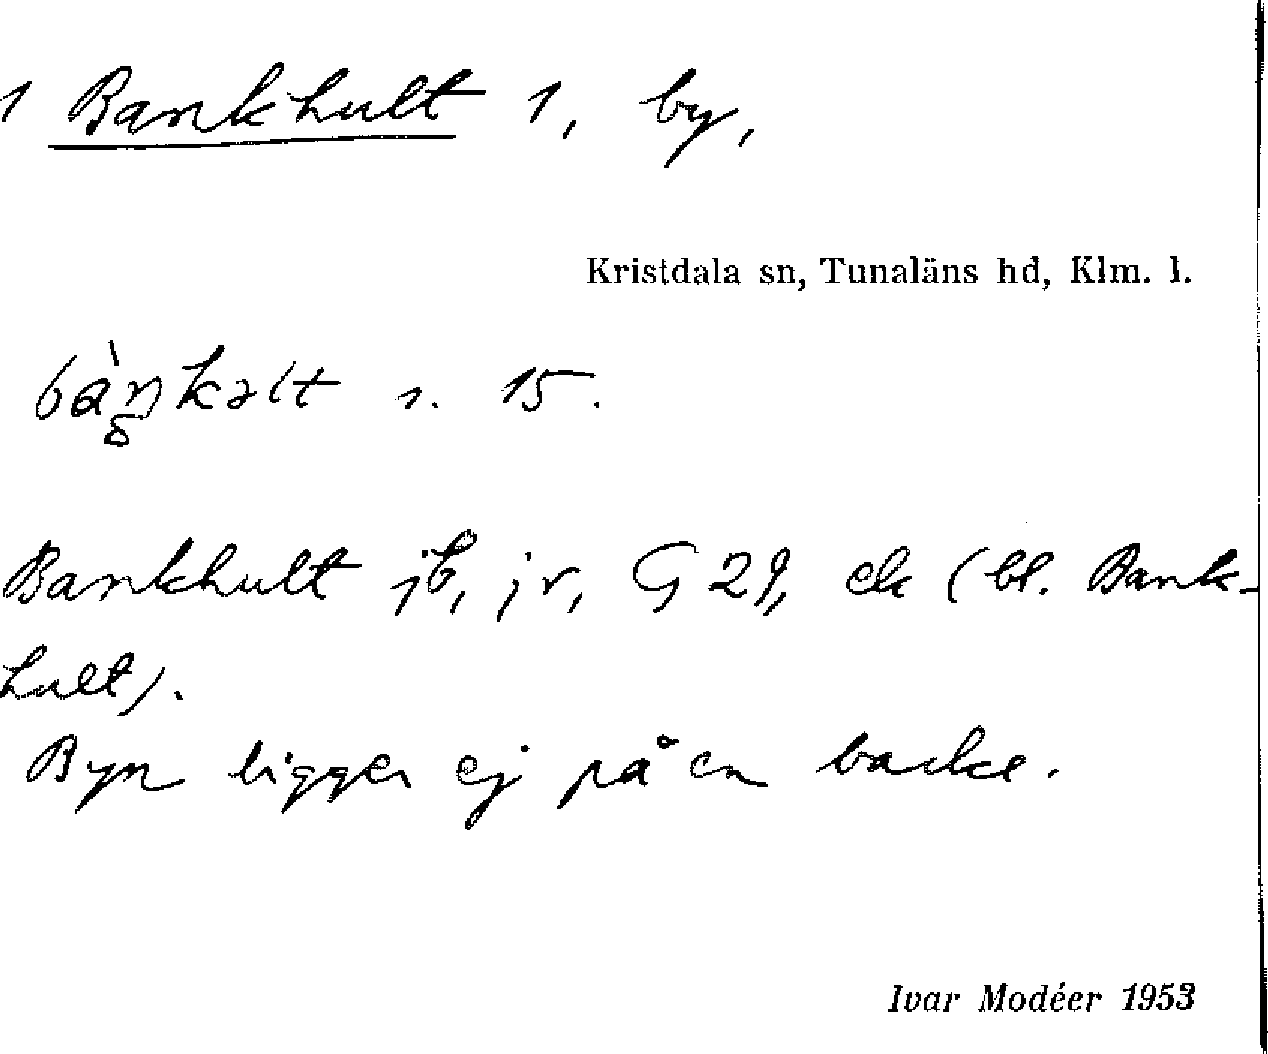 1 Bankhult 1, by,
Kristdala sn, Tunaläns hd, Klm. l.
bàŋkəlt s. 15.
Bankhult jb, jr, G 29, ek (bl. Bank-
hult).
Byn ligger ej på en backe.
Ivar Modéer 1953